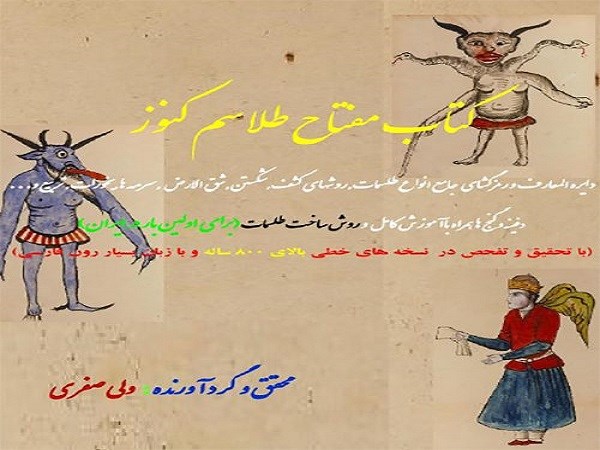 کتاب مفتاح طلاسم کنوز
دایره المعارف و رمزگشای جامع انواع طلسمات، روشهای کشف، شکستن، شق الارض،
دفینه و گنج ها همراه با آموزش کامل و روش ساخت طلسمات (برای اولین بار در ایران)
(با تحقیق و تفحص در نسخه های خطی بالای ۸۰۰ ساله و با زبان بسیار روان فارسی)
محقق و گردآورنده: ولی صفری